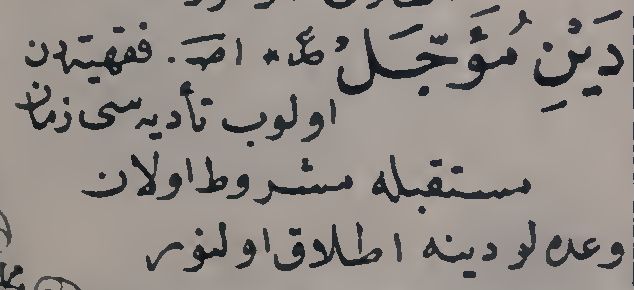 دَيْنِ مُؤَجَّلْ عگ * اصـ. فقهيّه‌دن
اولوب تأديه‌سى زمان
مستقبله مشروط اولان
وعده‌لو دينه اطلاق اولنور